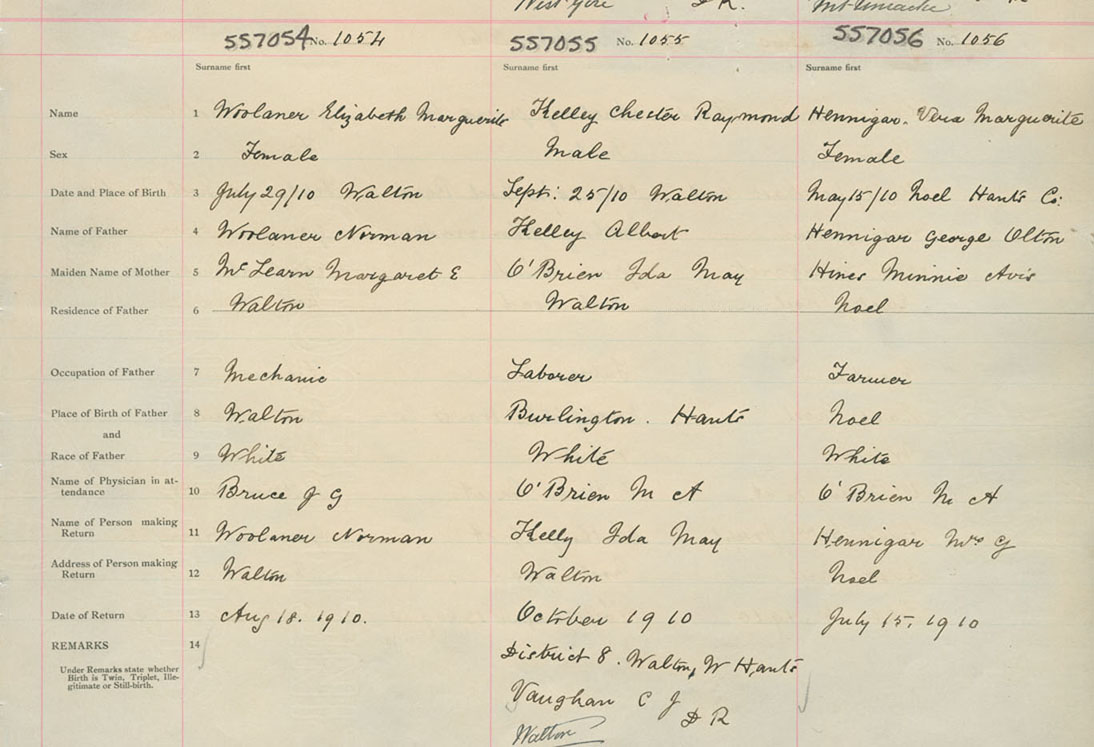 West Gore D R. Mt Uniacke
557054 No. 1054 557055 No. 1055 557056 No. 1056
Surname first Surname first Surname first
Name 1 Woolaner Elizabeth Marguerite Kelley Chester Raymond Hennigar. Vera Marguerite
Sex 2 Female Male Female
Date and Place of Birth 3 July 29/10 Walton Sept: 25/10 Walton May 15/10 Noel Hants Co:
Name of Father 4 Woolaner Norman Kelley Albert Hennigar George Olton
Maiden Name of Mother 5 Mc Learn Margaret E O'Brien Ida May Hines Minnie Avis
Residence of Father 6 Walton Walton Noel
Occupation of Father 7 Mechanic Laborer Farmer
Place of Birth of Father 8 Walton Burlington. Hants Noel
and
Race of Father 9 White White White
Name of Physician in at-
tendance 10 Bruce J G O'Brien M A O'Brien M A
Name of Person making
Return 11 Woolaner Norman Kelly Ida May Hennigar Mrs G
Address of Person making
Return 12 Walton Walton Noel
Date of Return 13 Aug 18. 1910. October 1910 July 15, 1910
REMARKS 14 District 8. Walton, W Hants
Under Remarks state whether
Birth is Twin, Triplet, Ille-
gitimate or Still-birth.
Vaughan C J
D R
Walton